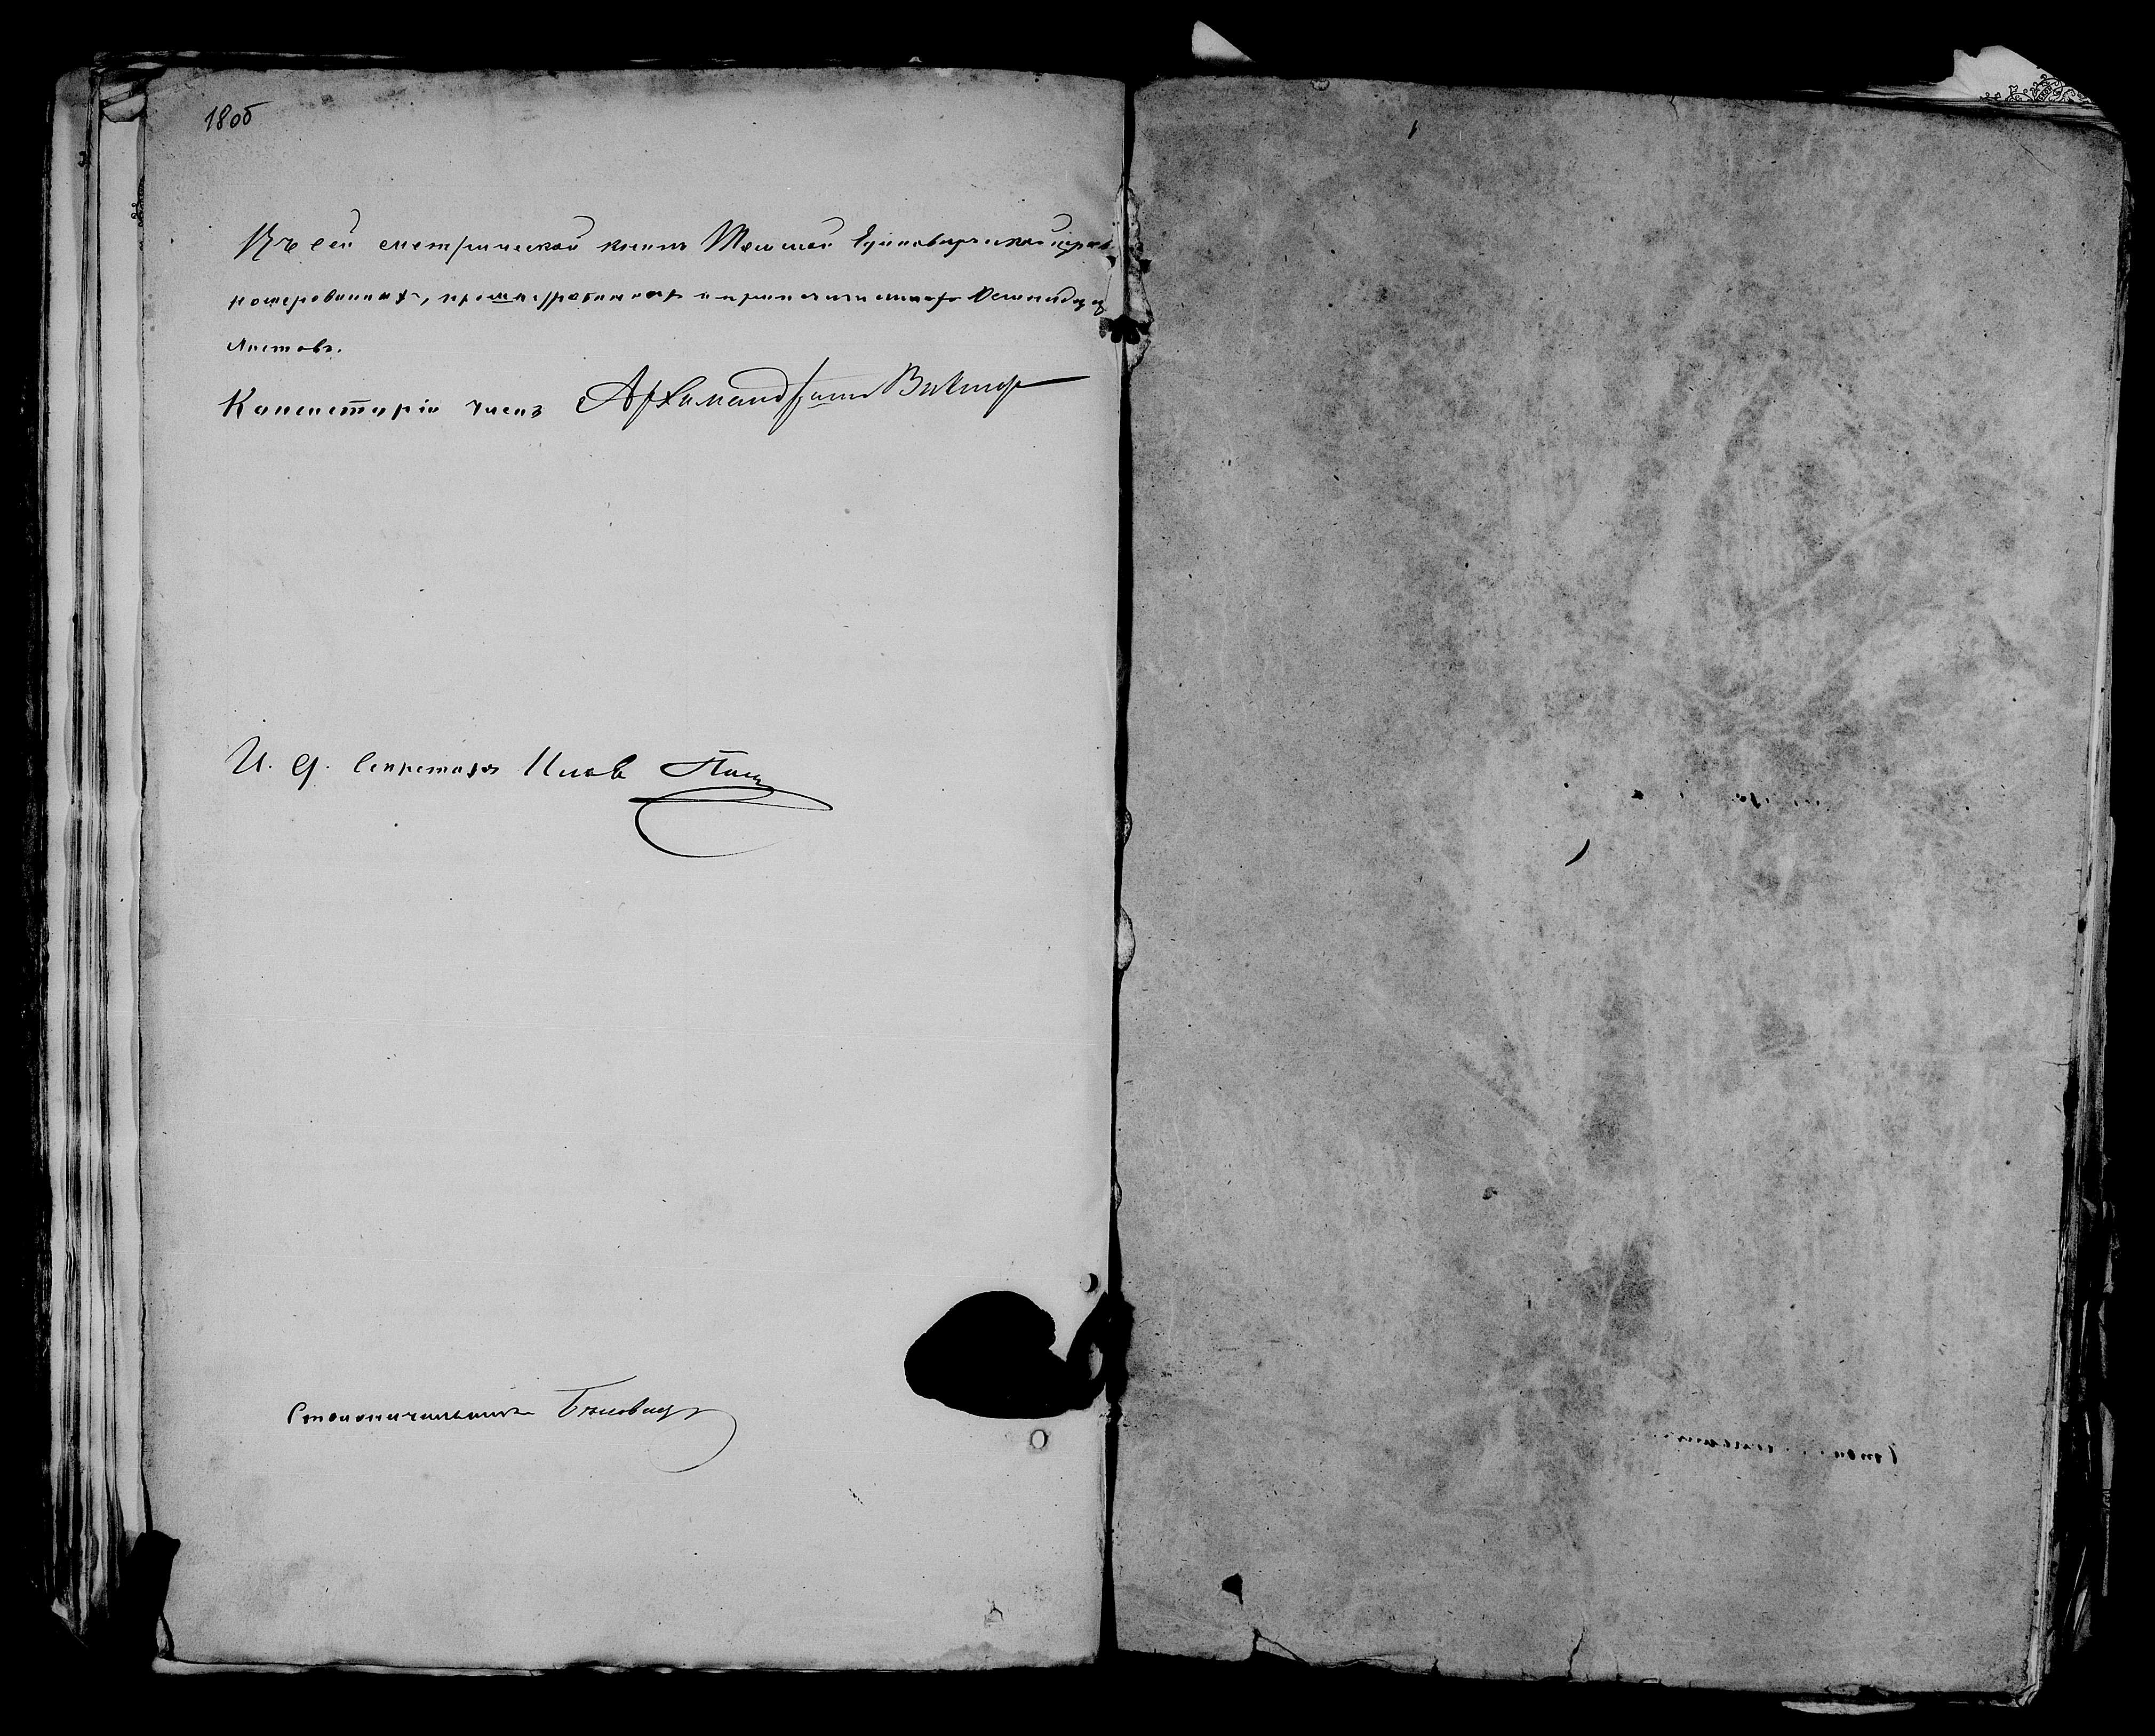 18об
Въ сей метрической книгѣ Томской Единовѣрческой церкви
номерованныхъ, прошнурованныхъ и припечатанныхъ
листовъ.
Консисторіи членъ Архимандритъ Викторъ
И. д. Секретаря
Столоначальникъ